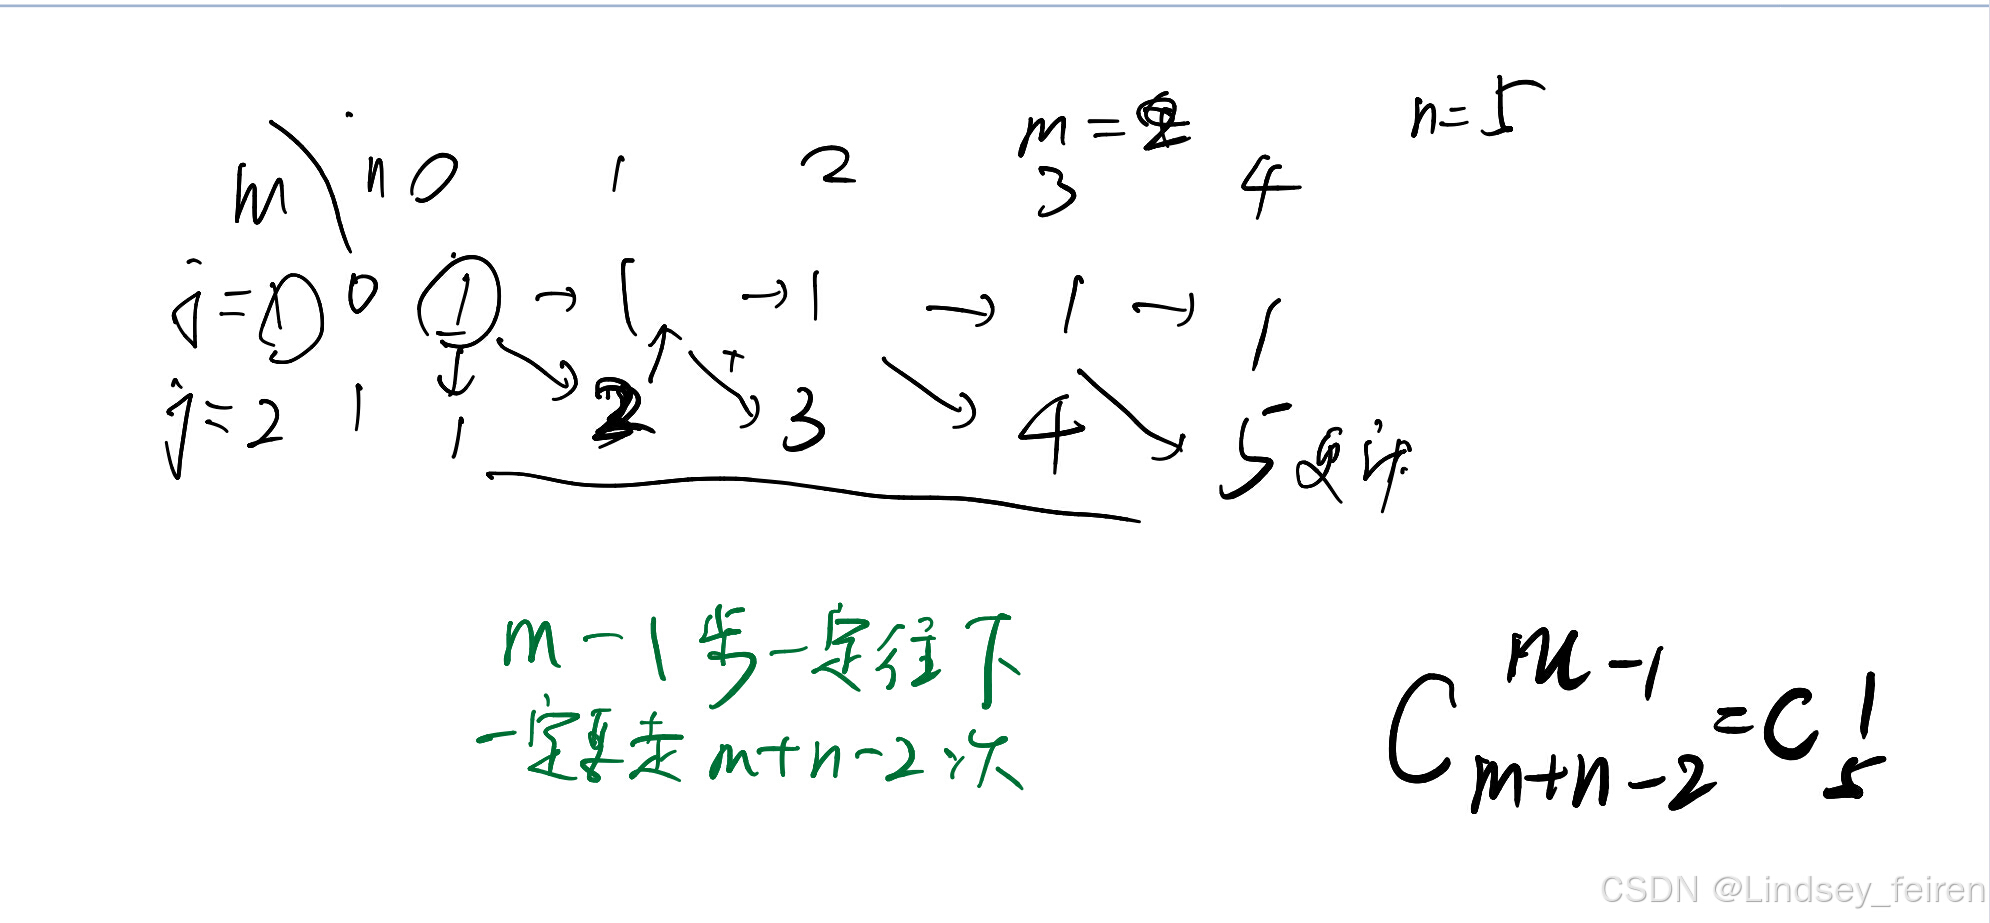 m=2 n=5
m n 0 1 2 3 4
i=1 0 1 → 1 → 1 → 1 → 1
j=2 1 1 2 3 4 5
+
m-1步一定往下
一定要走m+n-2次
C_{m+n-2}^{m-1}=C_5^1
CSDN @Lindsey_feiren